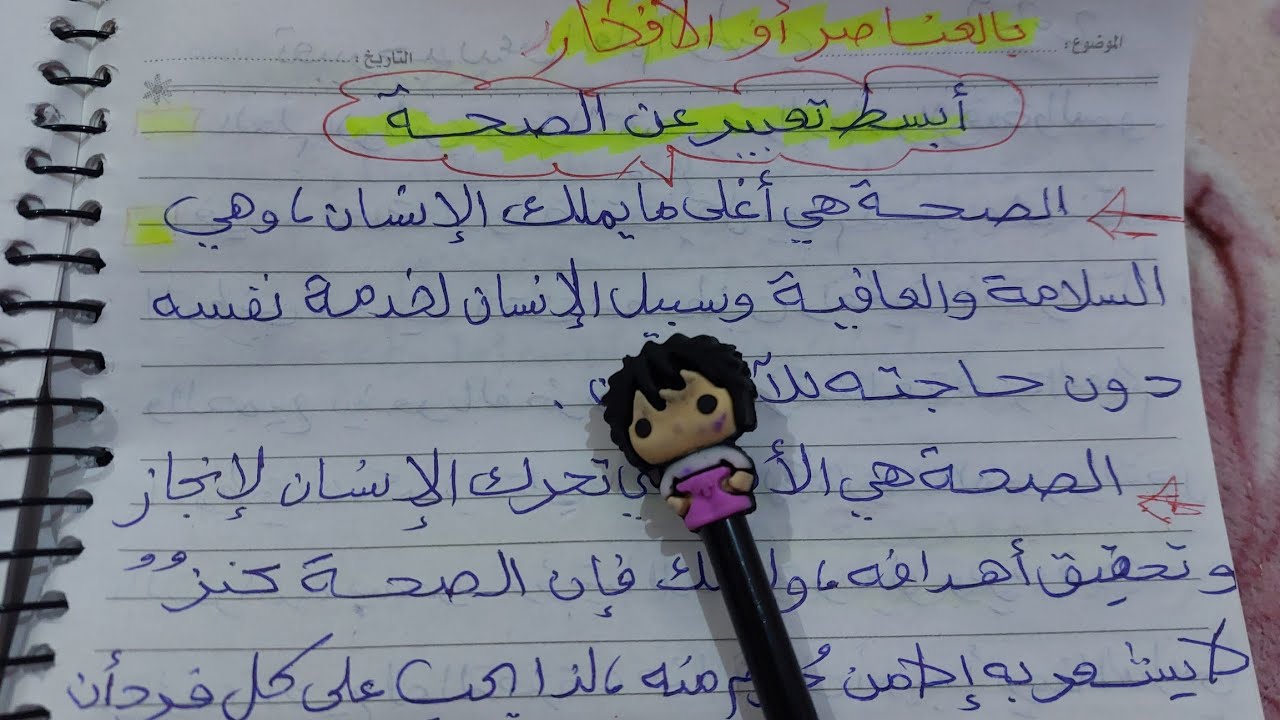 بالعناصر أو الأفكار
الموضوع:
التاريخ:
أبسط تعبير عن الصحة
الصحة هي أغلى ما يملك الإنسان، وهي
السلامة والعافية وسبيل الإنسان لخدمة نفسه
دون حاجته .
الصحة هي تحرك الإنسان لإنجاز
وتحقيق أهدافه، فإن الصحة كنزٌ
لا يشعر به إلا من منه، لذا يجب على كل فرد أن